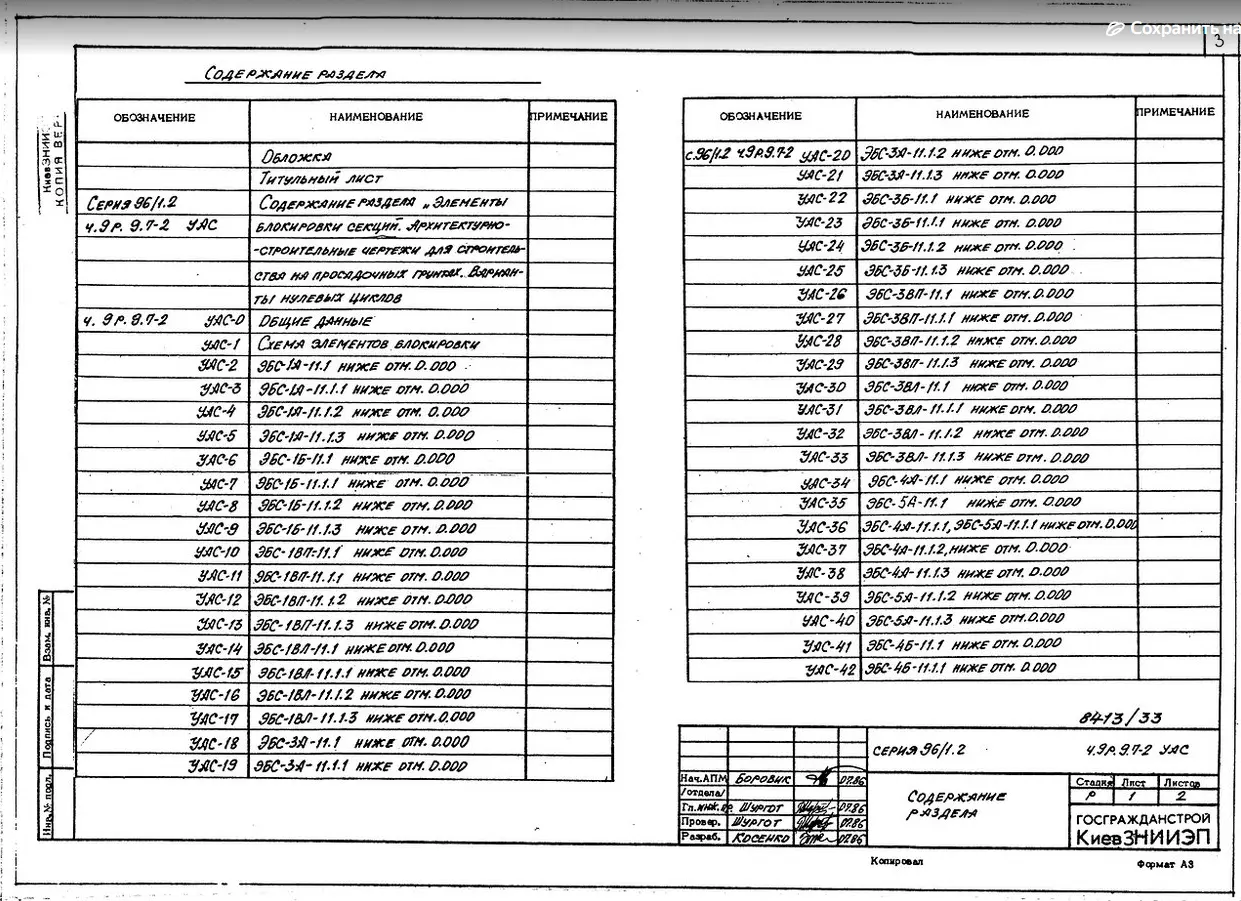 Сохранить на
3
Содержание раздела
ОБОЗНАЧЕНИЕ НАИМЕНОВАНИЕ ПРИМЕЧАНИЕ
Обложка
Титульный лист
Серия 96/1.2 Содержание раздела „Элементы
ч.9р. 9.7-2 УАС блокировки секций. Архитектурно-
-строительные чертежи для строитель-
ства на просадочных грунтах. Вариан-
ты нулевых циклов
ч. 9р. 9.7-2 УАС-0 Общие данные
УАС-1 Схема элементов блокировки
УАС-2 ЭБС-1А-11.1 ниже отм. 0.000
УАС-3 ЭБС-1А-11.1.1 ниже отм. 0.000
УАС-4 ЭБС-1А-11.1.2 ниже отм. 0.000
УАС-5 ЭБС-1А-11.1.3 ниже отм. 0.000
УАС-6 ЭБС-1Б-11.1 ниже отм. 0.000
УАС-7 ЭБС-1Б-11.1.1 ниже отм. 0.000
УАС-8 ЭБС-1Б-11.1.2 ниже отм. 0.000
УАС-9 ЭБС-1Б-11.1.3 ниже отм. 0.000
УАС-10 ЭБС-1ВП-11.1 ниже отм. 0.000
УАС-11 ЭБС-1ВП-11.1.1 ниже отм. 0.000
УАС-12 ЭБС-1ВП-11.1.2 ниже отм. 0.000
УАС-13 ЭБС-1ВП-11.1.3 ниже отм. 0.000
УАС-14 ЭБС-1ВЛ-11.1 ниже отм. 0.000
УАС-15 ЭБС-1ВЛ-11.1.1 ниже отм. 0.000
УАС-16 ЭБС-1ВЛ-11.1.2 ниже отм. 0.000
УАС-17 ЭБС-1ВЛ-11.1.3 ниже отм. 0.000
УАС-18 ЭБС-3А-11.1 ниже отм. 0.000
УАС-19 ЭБС-3А-11.1.1 ниже отм. 0.000
ОБОЗНАЧЕНИЕ НАИМЕНОВАНИЕ ПРИМЕЧАНИЕ
с.96/1.2 ч.9р.9.7-2 УАС-20 ЭБС-3А-11.1.2 ниже отм. 0.000
УАС-21 ЭБС-3А-11.1.3 ниже отм. 0.000
УАС-22 ЭБС-3Б-11.1 ниже отм. 0.000
УАС-23 ЭБС-3Б-11.1.1 ниже отм. 0.000
УАС-24 ЭБС-3Б-11.1.2 ниже отм. 0.000
УАС-25 ЭБС-3Б-11.1.3 ниже отм. 0.000
УАС-26 ЭБС-3ВП-11.1 ниже отм. 0.000
УАС-27 ЭБС-3ВП-11.1.1 ниже отм. 0.000
УАС-28 ЭБС-3ВП-11.1.2 ниже отм. 0.000
УАС-29 ЭБС-3ВП-11.1.3 ниже отм. 0.000
УАС-30 ЭБС-3ВЛ-11.1 ниже отм. 0.000
УАС-31 ЭБС-3ВЛ-11.1.1 ниже отм. 0.000
УАС-32 ЭБС-3ВЛ-11.1.2 ниже отм. 0.000
УАС-33 ЭБС-3ВЛ-11.1.3 ниже отм. 0.000
УАС-34 ЭБС-4А-11.1 ниже отм. 0.000
УАС-35 ЭБС-5А-11.1 ниже отм. 0.000
УАС-36 ЭБС-4А-11.1.1, ЭБС-5А-11.1.1 ниже отм. 0.000
УАС-37 ЭБС-4А-11.1.2, ниже отм. 0.000
УАС-38 ЭБС-4А-11.1.3 ниже отм. 0.000
УАС-39 ЭБС-5А-11.1.2 ниже отм. 0.000
УАС-40 ЭБС-5А-11.1.3 ниже отм. 0.000
УАС-41 ЭБС-4Б-11.1 ниже отм. 0.000
УАС-42 ЭБС-4Б-11.1.1 ниже отм. 0.000
КиевЗНИИ
КОПИЯ ВЕР
Взам. инв. №
Подпись и дата
Инв. № подл.
8413/33
Серия 96/1.2 ч.9р.9.7-2 УАС
Нач.АПМ Боровик 07.86
/отдела/
Гл.инж.пр Шургот 07.86
Провер. Шургот 07.86
Разраб. Косенко 07.86
Содержание
раздела
Стадия Лист Листов
Р 1 2
ГОСГРАЖДАНСТРОЙ
КиевЗНИИЭП
Копировал
Формат А3